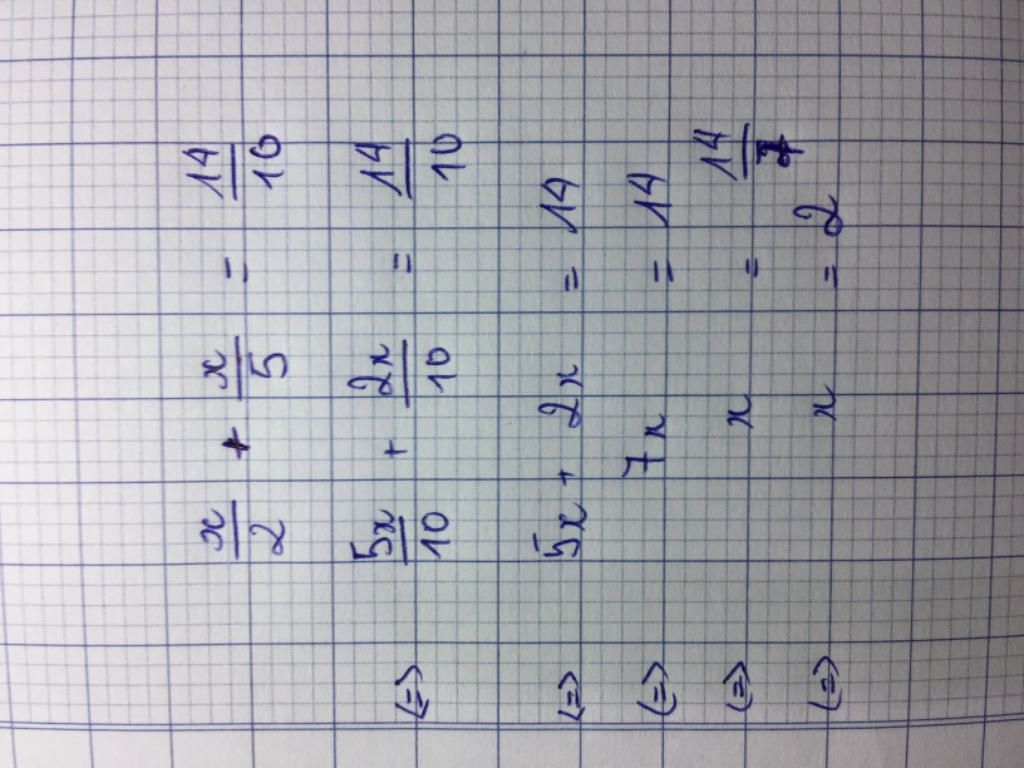 x/2 + x/5 = 14/10
(=) 5x/10 + 2x/10 = 14/10
(=) 5x + 2x = 14
(=) 7x = 14
(=) x = 14/7
(=) x = 2